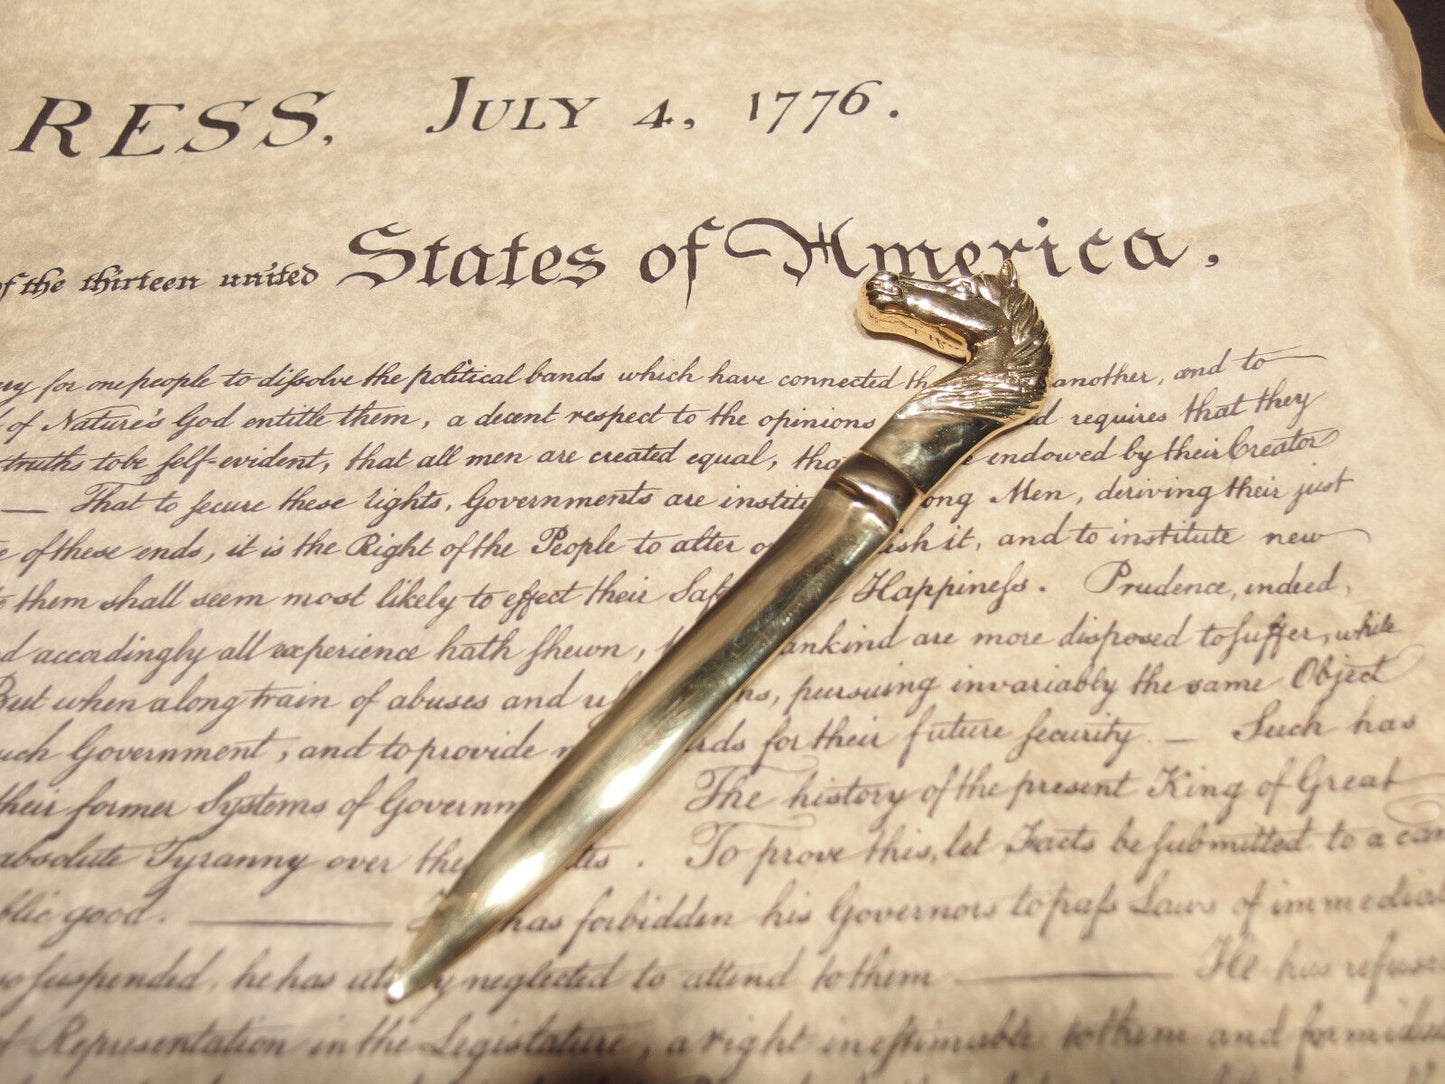 RESS, JULY 4, 1776.
of the thirteen united States of America,
for one people to dissolve the political bands which have connected th another, and to
of Nature's God entitle them, a decent respect to the opinions requires that they
truths to be self-evident, that all men are created equal, tha endowed by their Creator
— That to secure these rights, Governments are institu ong Men, deriving their just
of these ends, it is the Right of the People to alter o ish it, and to institute new
them shall seem most likely to effect their Saf Happiness. Prudence, indeed,
d accordingly all experience hath shewn, ankind are more disposed to suffer, while
But when a long train of abuses and us ns, pursuing invariably the same Object
uch Government, and to provide n rds for their future security. — Such has
their former Systems of Governm The history of the present King of Great
absolute Tyranny over the tes. To prove this, let Facts be submitted to a can
blic good. has forbidden his Governors to pass Laws of immediat
so suspended, he has ut y neglected to attend to them He has refuse
of Representation in the Legislature, a right inestimable to them and formidab